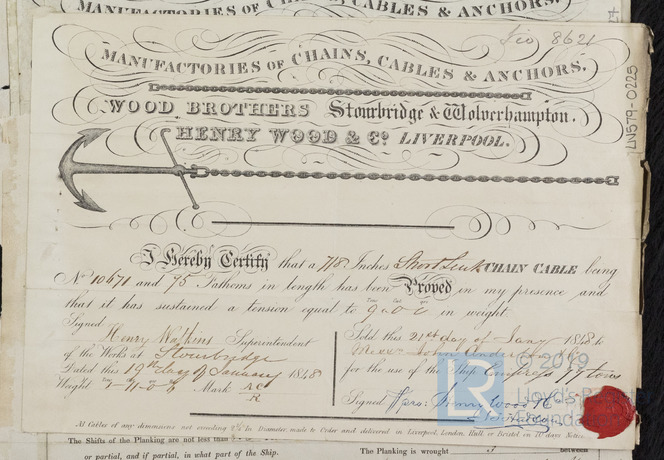 MANUFACTORIES OF CHAINS, CABLES & ANCHORS.
No 8621
MANUFACTORIES OF CHAINS, CABLES & ANCHORS.
WOOD BROTHERS Stourbridge & Wolverhampton.
HENRY WOOD & Co. LIVERPOOL.
LN579-0225
I Hereby Certify that a 7/8 Inches Short Link CHAIN CABLE being
No 10671 and 75 Fathoms in length has been Proved in my presence and
that it has sustained a tension equal to 9..0..0 in weight.
Signed
Henry Watkins Superintendent
of the Works at Stourbridge
Dated this 19th day of January 1848
Weight 1-11-0-6 Mark
Sold this 21st day of Jany 1848 to
Messrs John
for the use of the Ship
Signed pro: Henry Wood & Co
© 2019
LR
Lloyd's Register
Foundation
At Cables of any dimensions not exceeding 2½ In Diameter, made to Order and delivered in Liverpool, London, Hull or Bristol on 10 days Notice.
The Shifts of the Planking are not less than
or partial, and if partial, in what part of the Ship.
The Planking is wrought 3 between